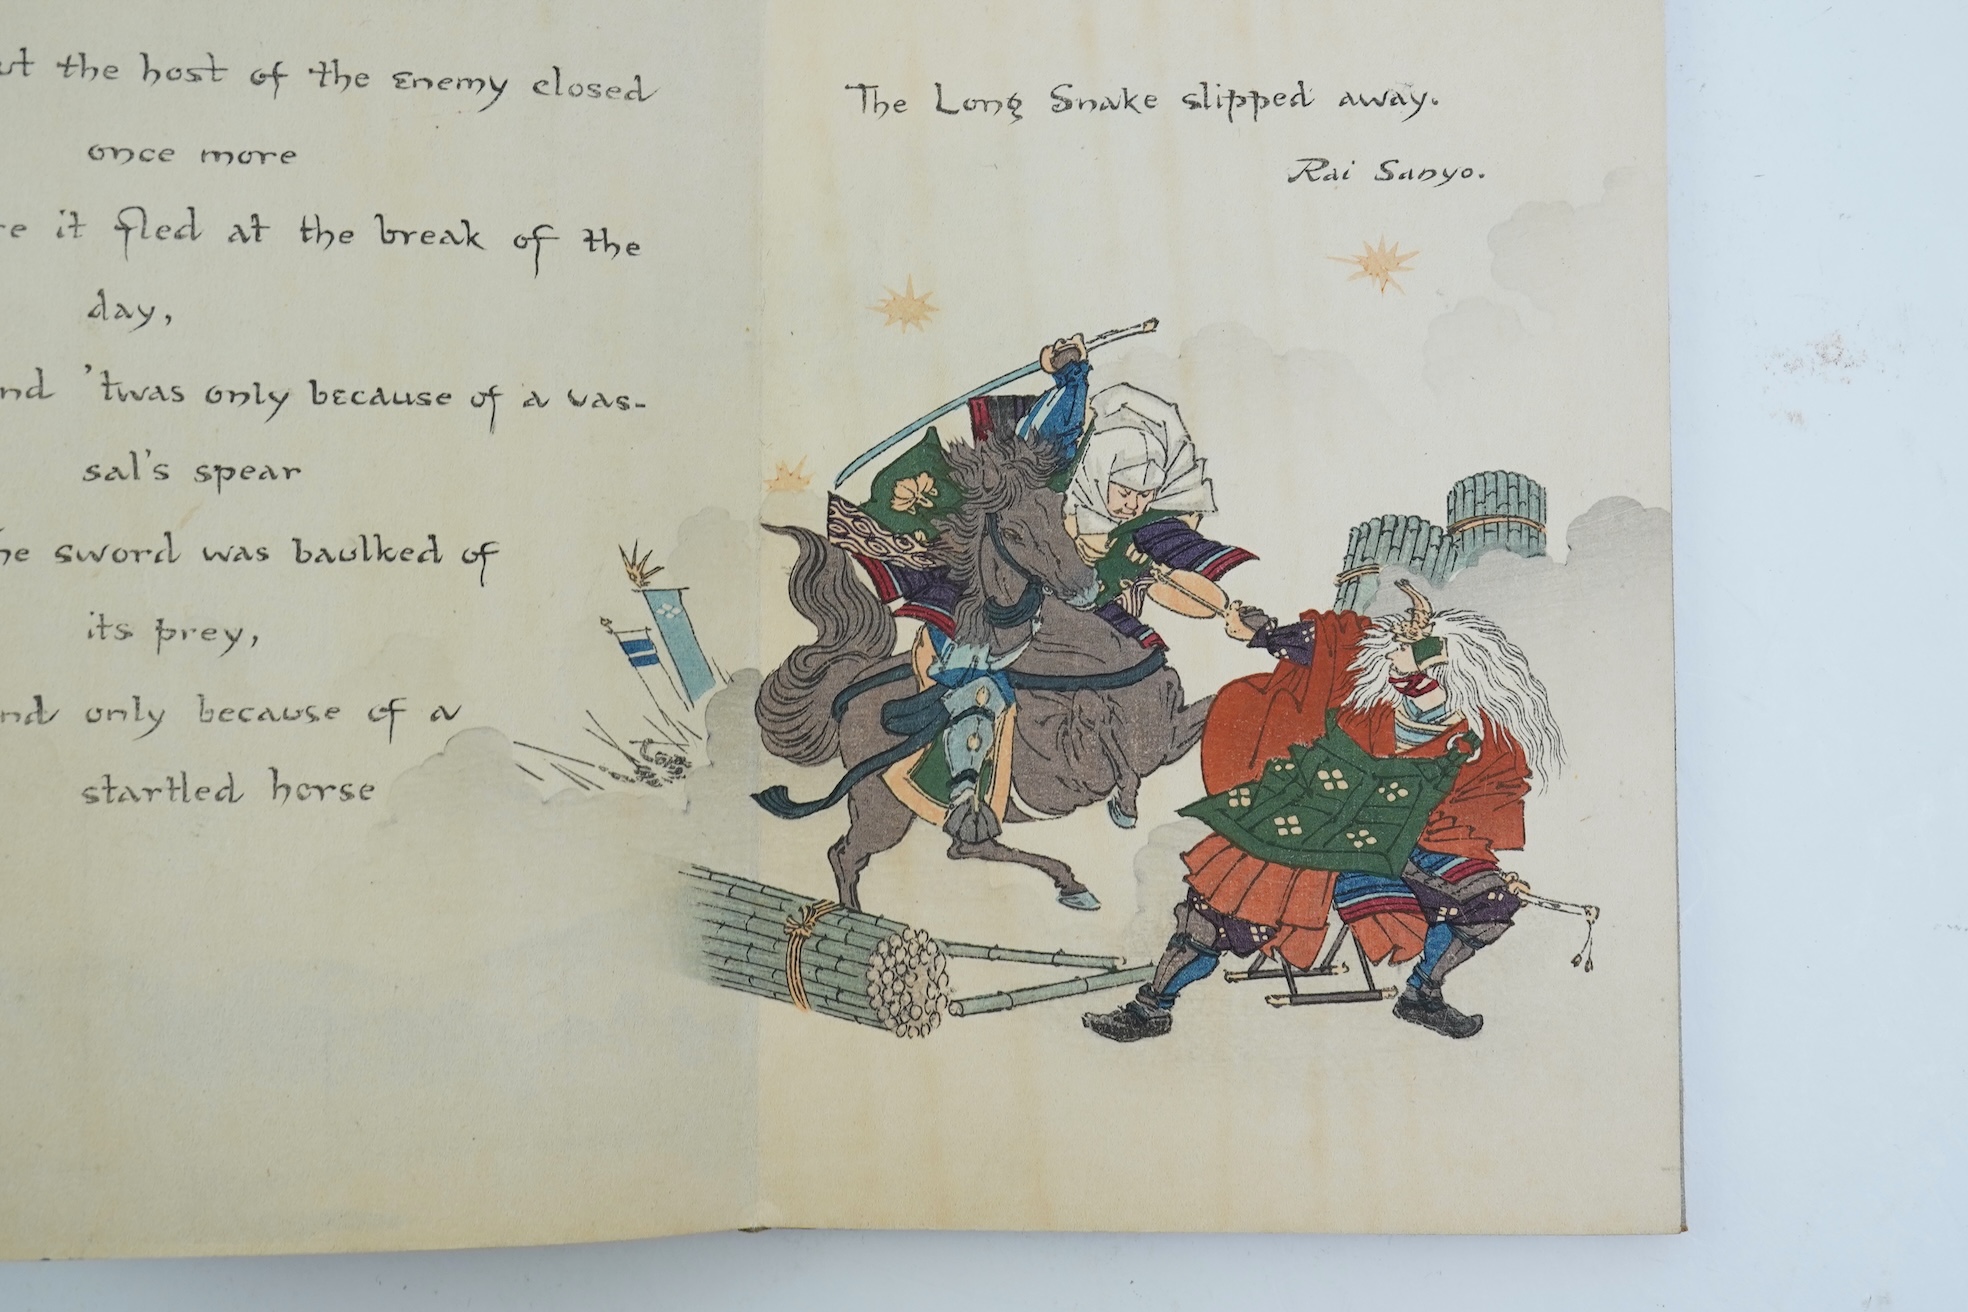 the host of the enemy closed
once more
it fled at the break of the
day,
'twas only because of a vas-
sal's spear
sword was baulked of
its prey,
only because of a
startled horse
The Long Snake slipped away.
Rai Sanyo.